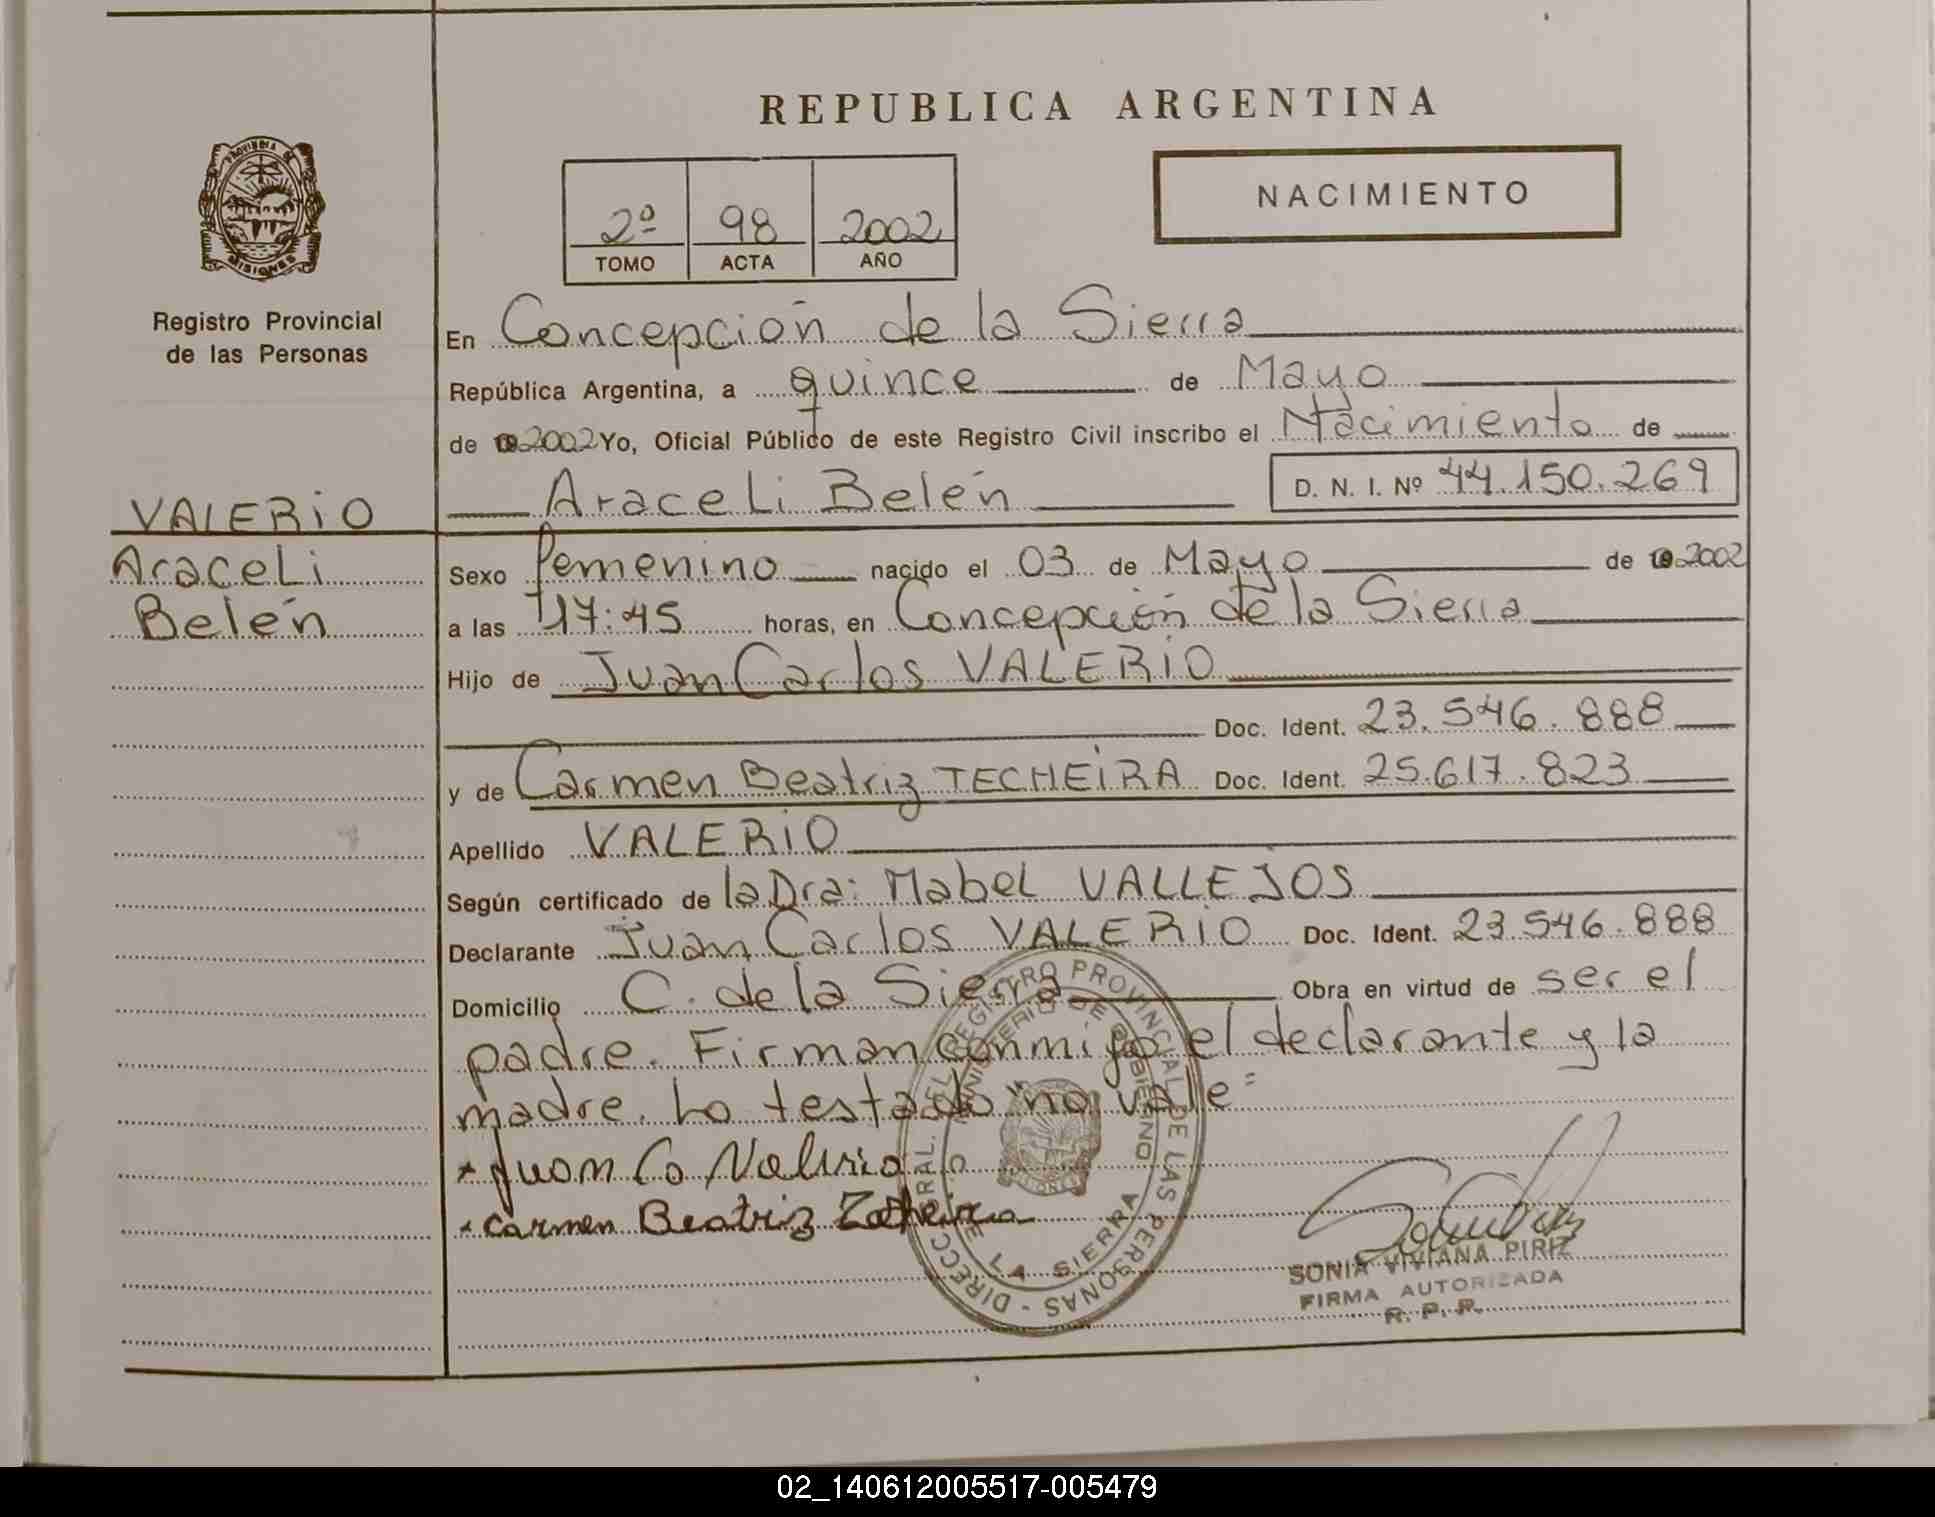 REPUBLICA ARGENTINA
PROVINCIA DE
MISIONES
Registro Provincial
de las Personas
2º 98 2002
TOMO ACTA AÑO
NACIMIENTO
En Concepción de la Sierra
República Argentina, a quince de Mayo
de 2002 Yo, Oficial Público de este Registro Civil inscribo el Nacimiento de
Araceli Belén D. N. I. Nº 44.150.269
VALERIO
Araceli
Belén
Sexo femenino nacido el 03 de Mayo de 2002
a las 17:45 horas, en Concepción de la Sierra
Hijo de Juan Carlos VALERIO
Doc. Ident. 23.546.888
y de Carmen Beatriz TECHEIRA Doc. Ident. 25.617.823
Apellido VALERIO
Según certificado de la Dra: Mabel VALLEJOS
Declarante Juan Carlos VALERIO Doc. Ident. 23.546.888
Domicilio C. de la Sierra Obra en virtud de ser el
padre. Firman conmigo el declarante y la
madre. Lo testado "no vale"
Juan Co Valerio
Carmen Beatriz
DIRECC. GRAL. DEL REGISTRO PROVINCIAL DE LAS PERSONAS -
MINISTERIO DE GOBIERNO
DE LA SIERRA
SONIA VIVIANA PIRIZ
FIRMA AUTORIZADA
R. P. P.
02_140612005517-005479